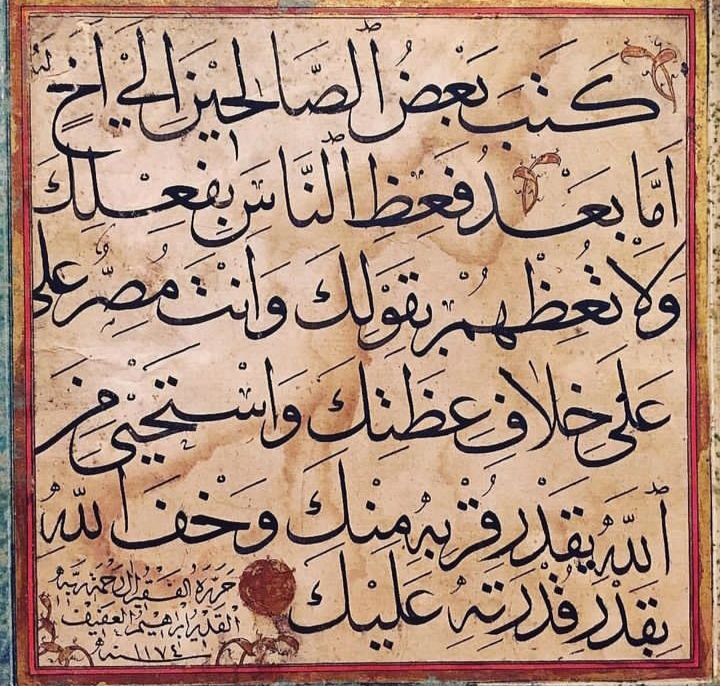 كَتَبَ بَعْضُ الصَّالِحِيْنَ اِلَيْ اَخٍ لَهُ
اَمَّا بَعْدُ فَعِظِ النَّاسَ بِفِعْلِكَ
وَلَا تَعِظْهُمْ بِقَوْلِكَ وَاَنْتَ مُصِرٌّ عَلَى
عَلَى خِلَافِ عِظَتِكَ وَاسْتَحْيِيْ مِنَ
اللّٰهِ بِقَدْرِ قُرْبِهِ مِنْكَ وَخَفِ اللّٰهَ
بِقَدْرِ قُدْرَتِهِ عَلَيْكَ
حرره الفقير الى رحمة ربه
القدير ابراهيم العفيف
سنه ١١٧٤